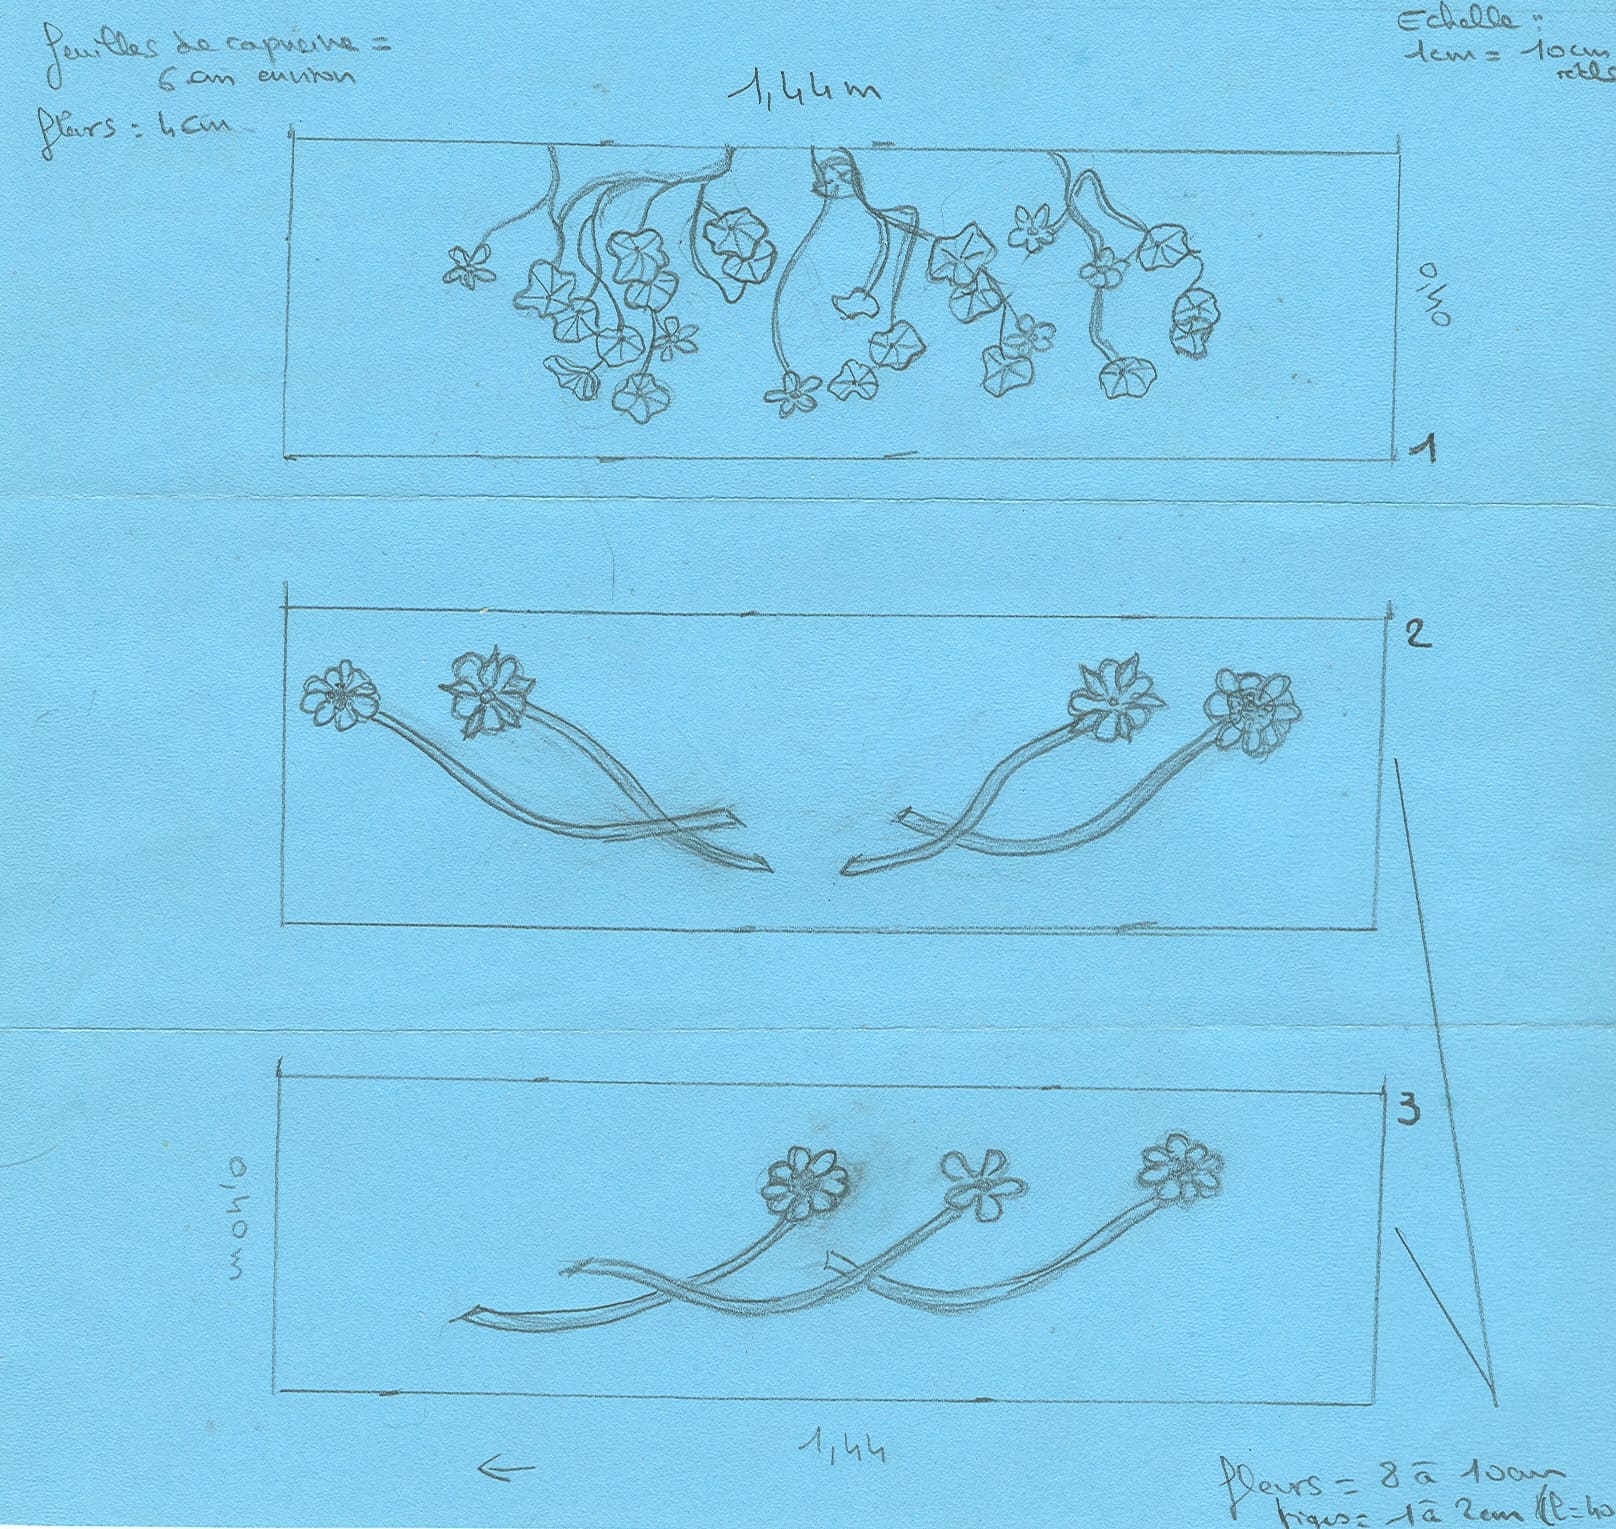 feuilles de capucine =
6 cm environ
fleurs : 4cm
Echelle :
1cm = 10cm
réels
1,44m
0,40
1
2
3
0,40m
1,44
fleurs = 8 à 10cm
tiges = 1 à 2cm (l=40